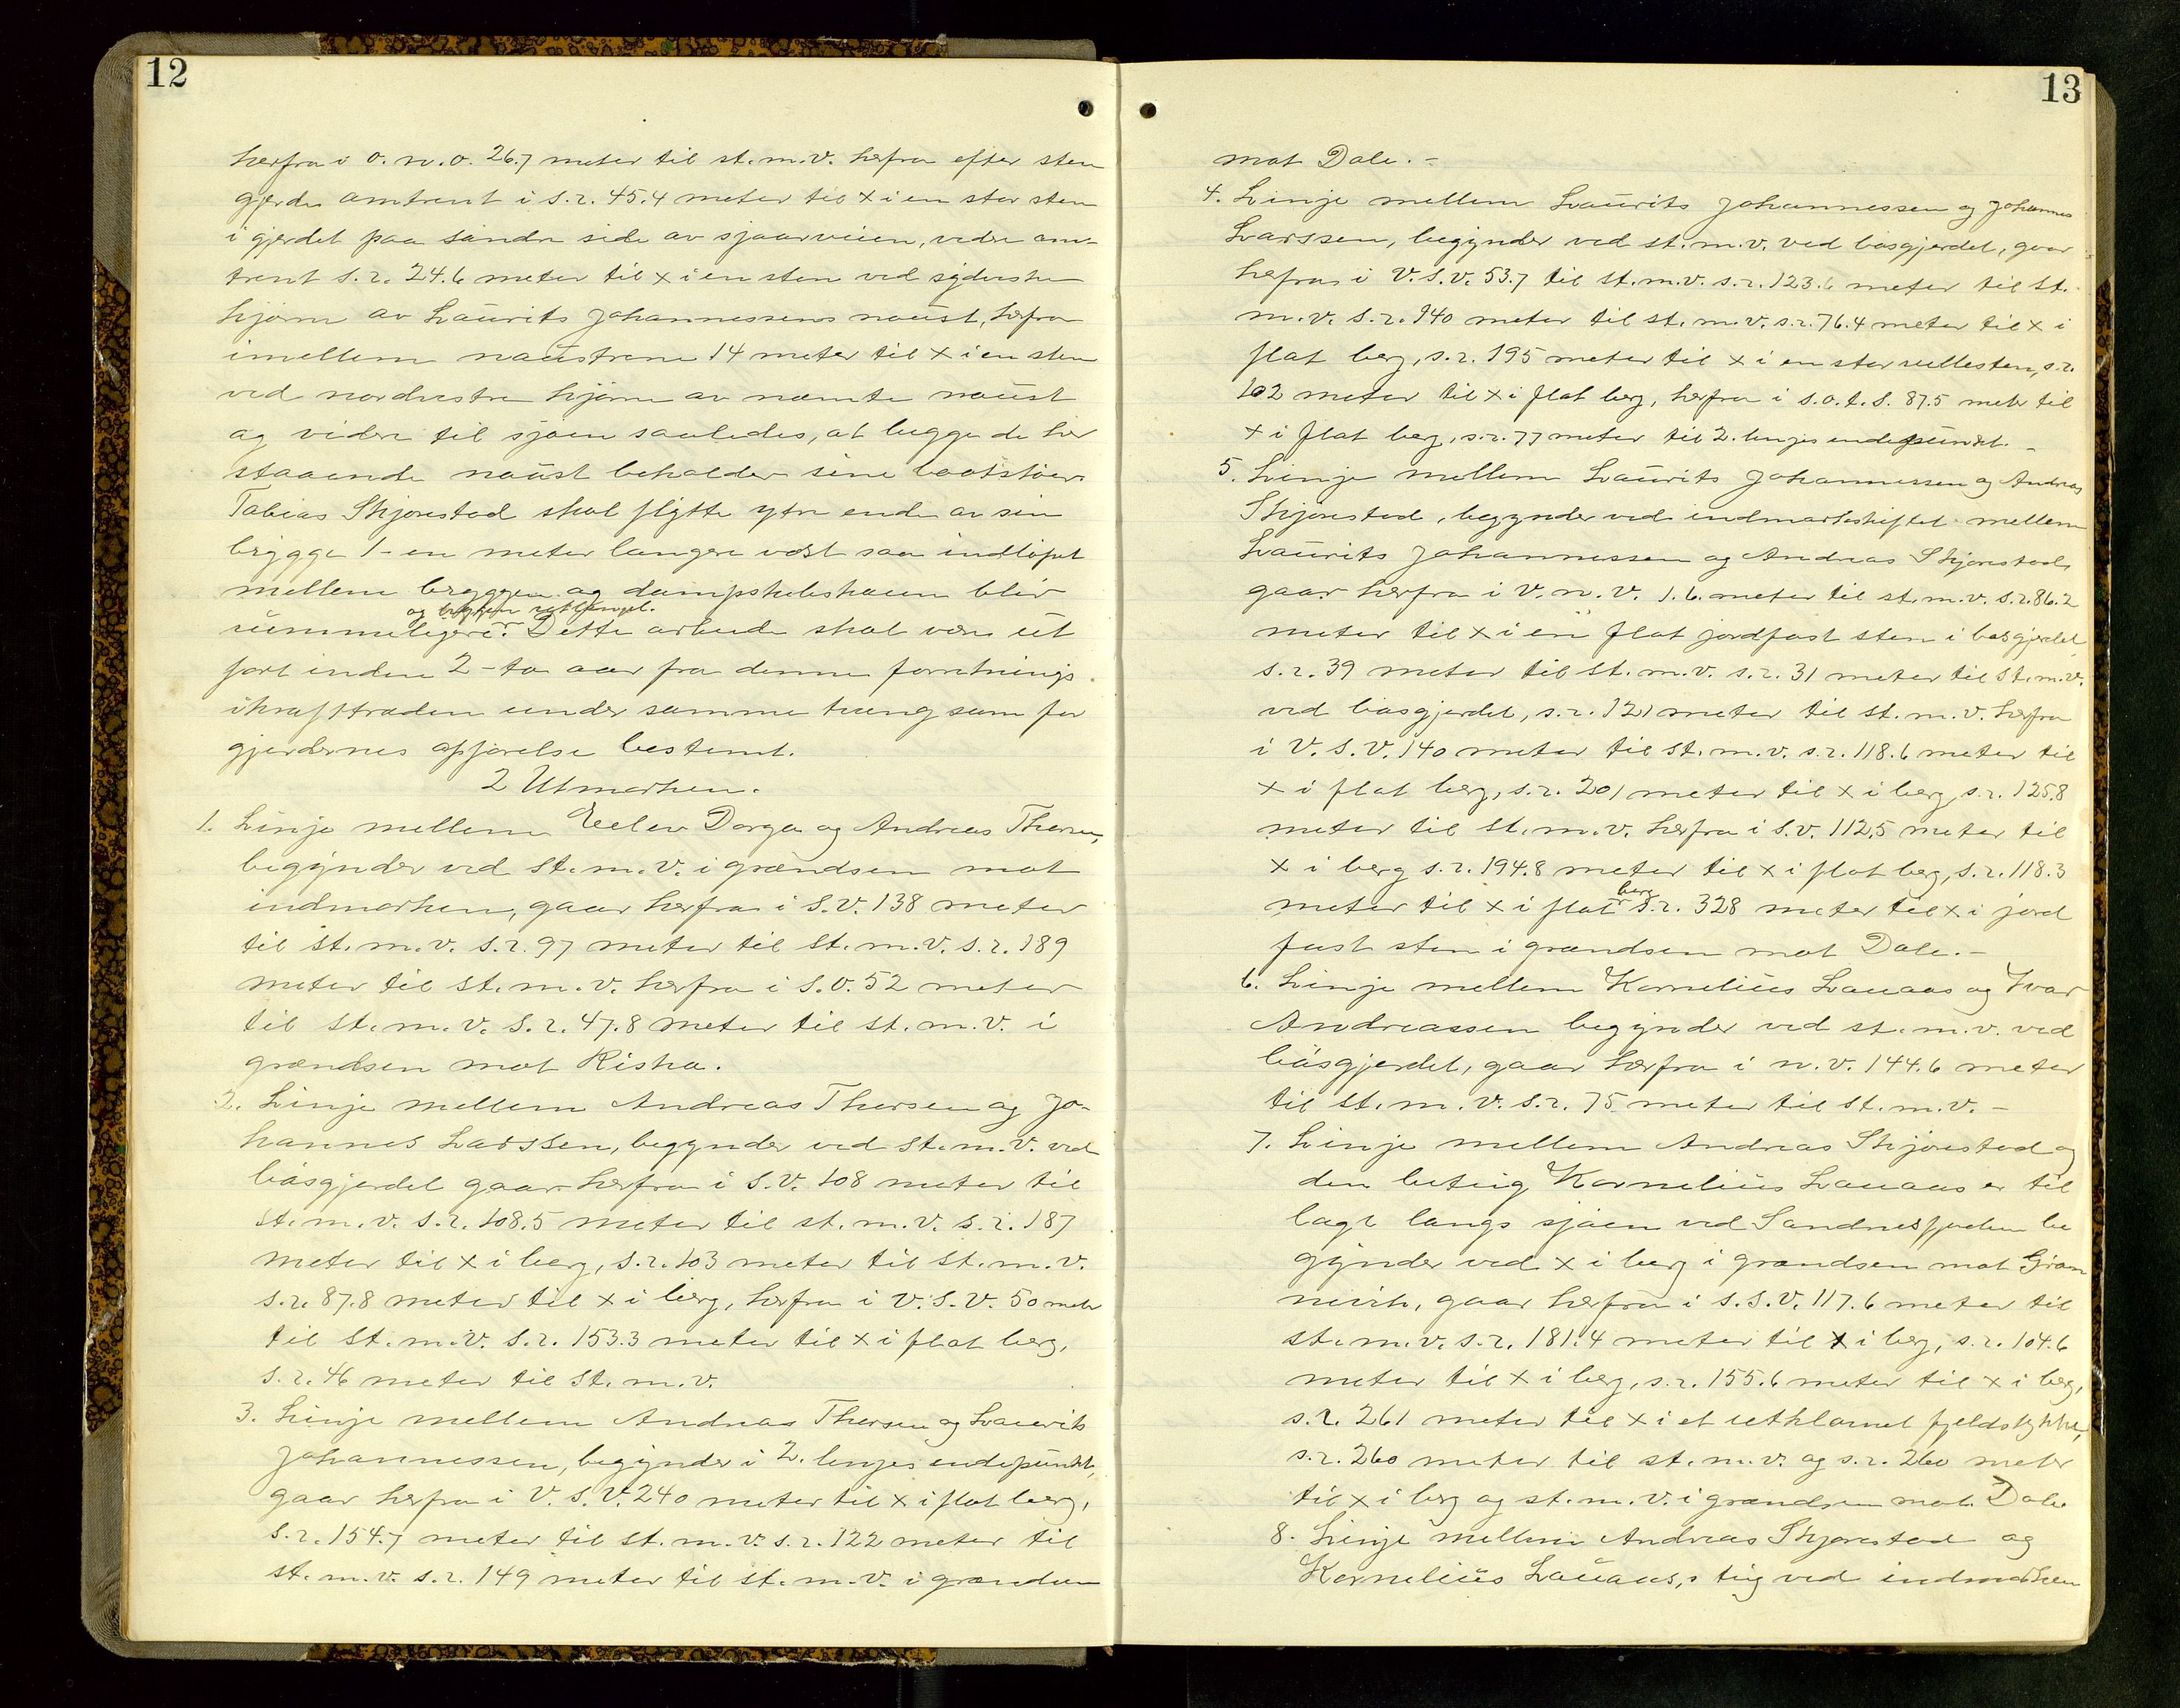 12
herfra i o.n.o. 26.7 meter til st.m.v. herfra efter sten
gjerde omtrent i s.r. 45.4 meter til × i en stor sten
i gjerdet paa søndre side av sjøarveien, videre om-
trent s.r. 24.6 meter til × i en sten ved syderstre
hjørne av Laurits Johannessens naust, herfra
imellem naustrene 14 meter til × i en sten
ved nordvestre hjørne av nævnte naust
og videre til sjøen saaledes, at begge de her
staaende naust beholder sine baatstøer.
Tobias Skjørestad skal flytte ytre ende av sin
brygge 1-en meter længere vest saa indløpet
mellem bryggen og dampskibskaien blir
og bryggen
rummeligere. Dette arbeide skal være ut
ført inden 2-to aar fra denne forretnings
ikrafttræden under samme tvang som for
gjerdernes opførelse bestemt.
2 Utmarken.
1. Linje mellem Eelev Dorga og Andreas Thorsen,
begynder ved st.m.v. i grændsen mot
indmarken, gaar herfra i S.V. 138 meter
til st.m.v. s.r. 97 meter til st.m.v. s.r. 189
meter til st.m.v. herfra i S.O. 52 meter
til st.m.v. s.r. 47.8 meter til st.m.v. i
grændsen mot Riska.
2. Linje mellem Andreas Thorsen og Jo-
hannes Larssen, begynder ved st.m.v. ved
bøsgjerdet gaar herfra i S.V. 108 meter til
st.m.v. s.r. 108.5 meter til st.m.v. s.r. 187
meter til × i berg, s.r. 103 meter til st.m.v.
s.r. 87.8 meter til × i berg, herfra i V.S.V. 50 meter
til st.m.v. s.r. 153.3 meter til × i flat berg,
s.r. 46 meter til st.m.v.
3. Linje mellem Andreas Thorsen og Laurits
Johannessen, begynder i 2. linjes endepunkt,
gaar herfra i V.S.V. 240 meter til × i flat berg,
s.r. 154.7 meter til st.m.v. s.r. 122 meter til
st.m.v. s.r. 149 meter til st.m.v. i grændsen
13
mot Dale.-
4. Linje mellem Laurits Johannessen og Johannes
Larssen, begynder ved st.m.v. ved bøsgjerdet, gaar
herfra i V.S.V. 53.7 til st.m.v. s.r. 123.6 meter til st.
m.v. s.r. 140 meter til st.m.v. s.r. 76.4 meter til × i
flat berg, s.r. 195 meter til × i en stor rullesten, s.r.
102 meter til × i flat berg, herfra i s.o.t.s. 87.5 meter til
× i flat berg, s.r. 77 meter til 2. linjes endepunkt.-
5. Linje mellem Laurits Johannessen og Andreas
Skjørestad, begynder ved indmarkskiftet mellem
Laurits Johannessen og Andreas Skjørestad,
gaar herfra i V.n.V. 1.6. meter til st.m.v. s.r. 86.2
meter til × i en flat jordfast sten i bøsgjerdet,
s.r. 39 meter til st.m.v. s.r. 31 meter til st.m.v.
ved bøsgjerdet, s.r. 121 meter til st.m.v. herfra
i V.S.V. 140 meter til st.m.v. s.r. 118.6 meter til
× i flat berg, s.r. 201 meter til × i berg, s.r. 125.8
meter til st.m.v. herfra i S.V. 112.5 meter til
× i berg s.r. 194.8 meter til × i flat berg, s.r. 118.3
meter til × i flat berg s.r. 328 meter til × i jord
fast sten i grændsen mot Dale.-
6. Linje mellem Kornelius Lauaas og Ivar
Andreassen begynder ved st.m.v. ved
bøsgjerdet, gaar herfra i n.v. 144.6 meter
til st.m.v. s.r. 75 meter til st.m.v.-
7. Linje mellem Andreas Skjørestad og
den beteig Kornelius Lauaas er til
lagt langs sjøen ved Sandnesfjorden be
gynder ved × i berg i grændsen mot Gram
nevik, gaar herfra i s.s.v. 117.6 meter til
st.m.v. s.r. 181.4 meter til × i berg, s.r. 104.6
meter til × i berg, s.r. 155.6 meter til × i berg,
s.r. 261 meter til × i et utklomet fjeldstykke,
s.r. 260 meter til st.m.v. og s.r. 260 meter
til × i berg og st.m.v. i grændsen mot Dale
8. Linje mellem Andreas Skjørestad og
Kornelius Lauaas, s teig ved indmarken